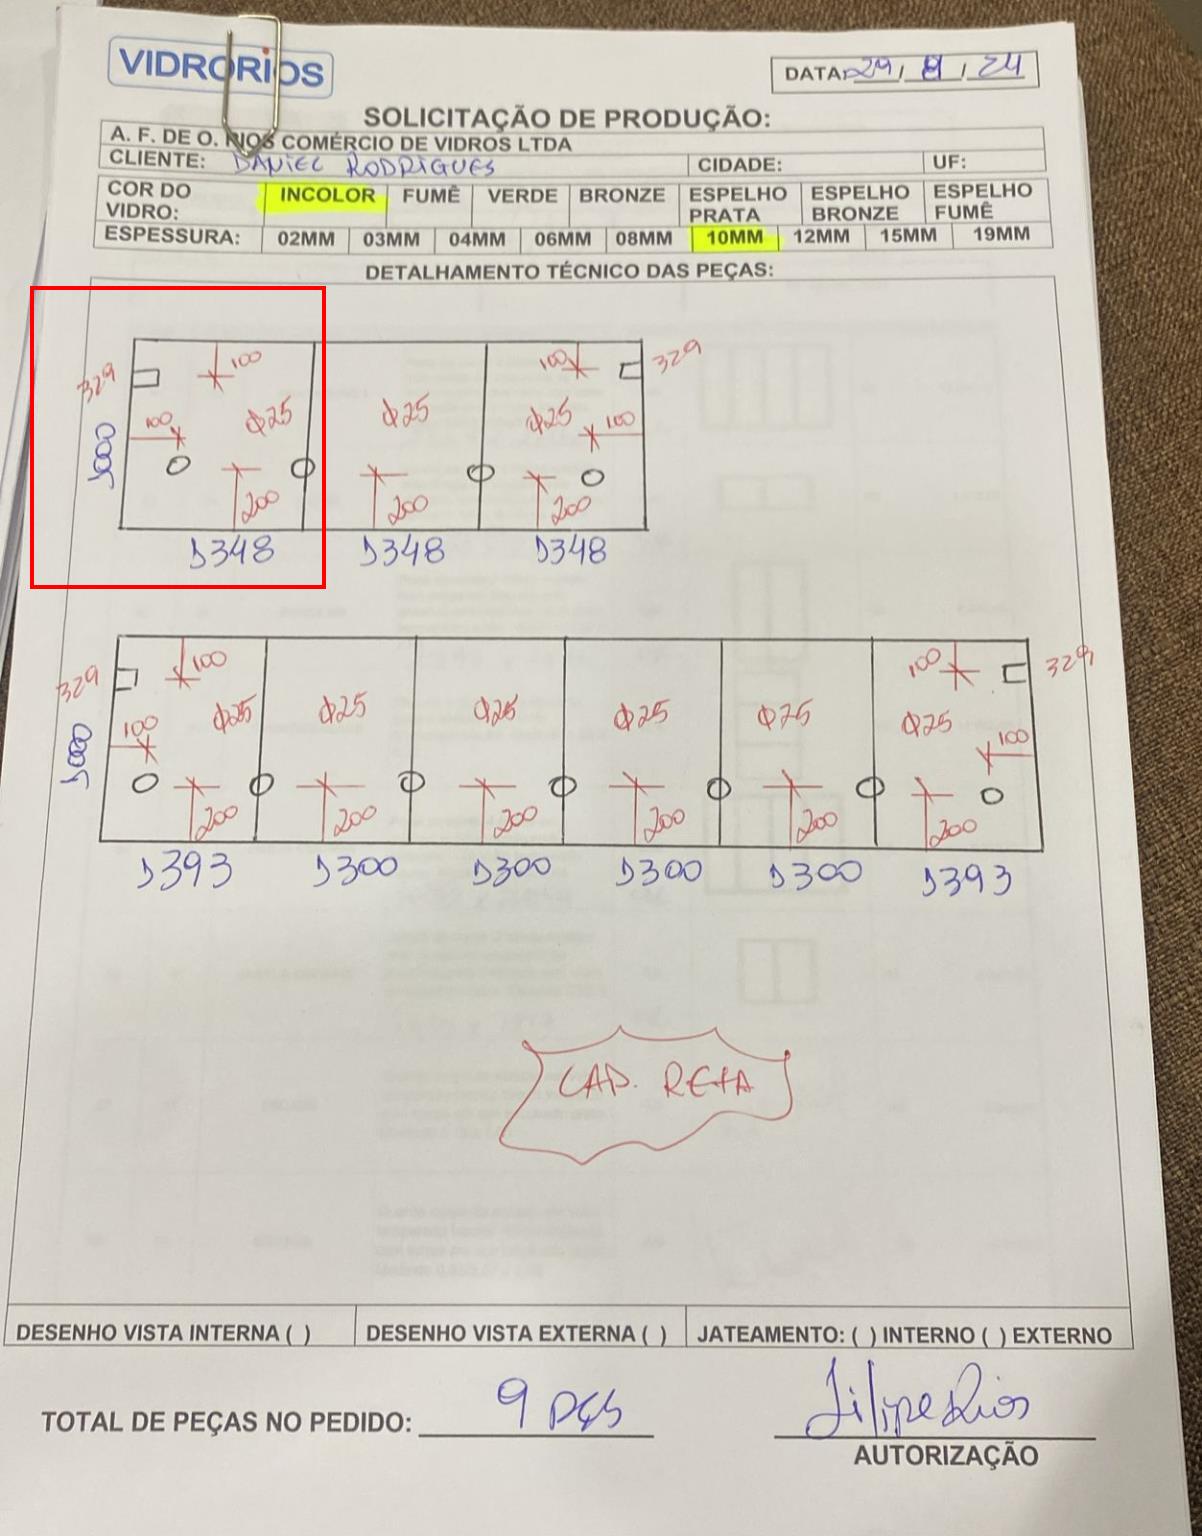 VIDRORIOS
DATA: 29 / 8 / 24
SOLICITAÇÃO DE PRODUÇÃO:
A. F. DE O. RIOS COMÉRCIO DE VIDROS LTDA
CLIENTE: DANIEL RODRIGUES CIDADE: UF:
COR DO VIDRO: INCOLOR FUMÊ VERDE BRONZE ESPELHO PRATA ESPELHO BRONZE ESPELHO FUMÊ
ESPESSURA: 02MM 03MM 04MM 06MM 08MM 10MM 12MM 15MM 19MM
DETALHAMENTO TÉCNICO DAS PEÇAS:
329 100 100 329
100 Φ25 Φ25 Φ25 100
1000
200 200 200
1348 1348 1348
329 100 100 329
100 Φ25 Φ25 Φ25 Φ25 Φ25 Φ25 100
1000
200 200 200 200 200 200
1393 1300 1300 1300 1300 1393
LAP. RETA
DESENHO VISTA INTERNA ( ) DESENHO VISTA EXTERNA ( ) JATEAMENTO: ( ) INTERNO ( ) EXTERNO
TOTAL DE PEÇAS NO PEDIDO: 9 PÇS
Filipe Rios
AUTORIZAÇÃO